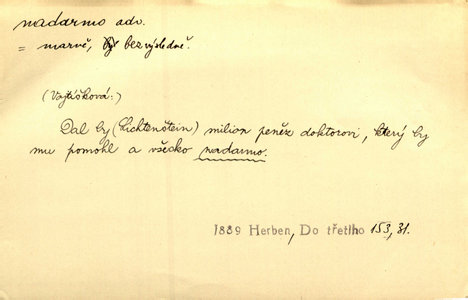 nadarmo adv.
= marně, bezvýsledně.
(Vojtíšková:)
Dal by (Lichtenštein) milion peněz doktorovi, který by
mu pomohl a všecko nadarmo.
1889 Herben, Do třetího 153, 31.